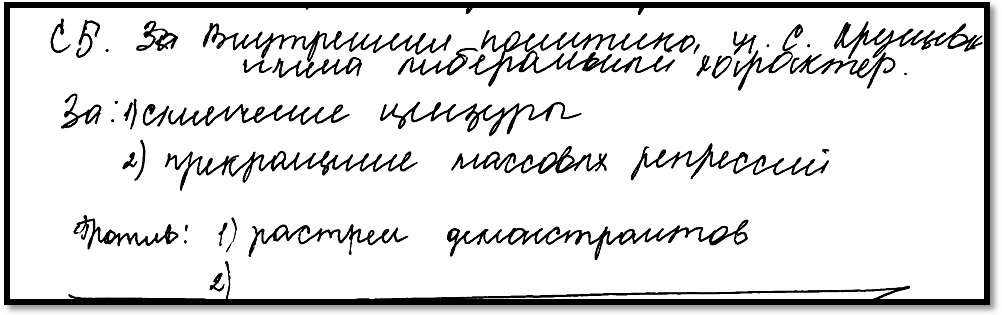 С5. За Внутренняя политика Н. С. Хрущева
имела либеральный характер.
За: 1) смягчение цензуры
2) прекращение массовых репрессий
Против: 1) расстрел демонстрантов
2)